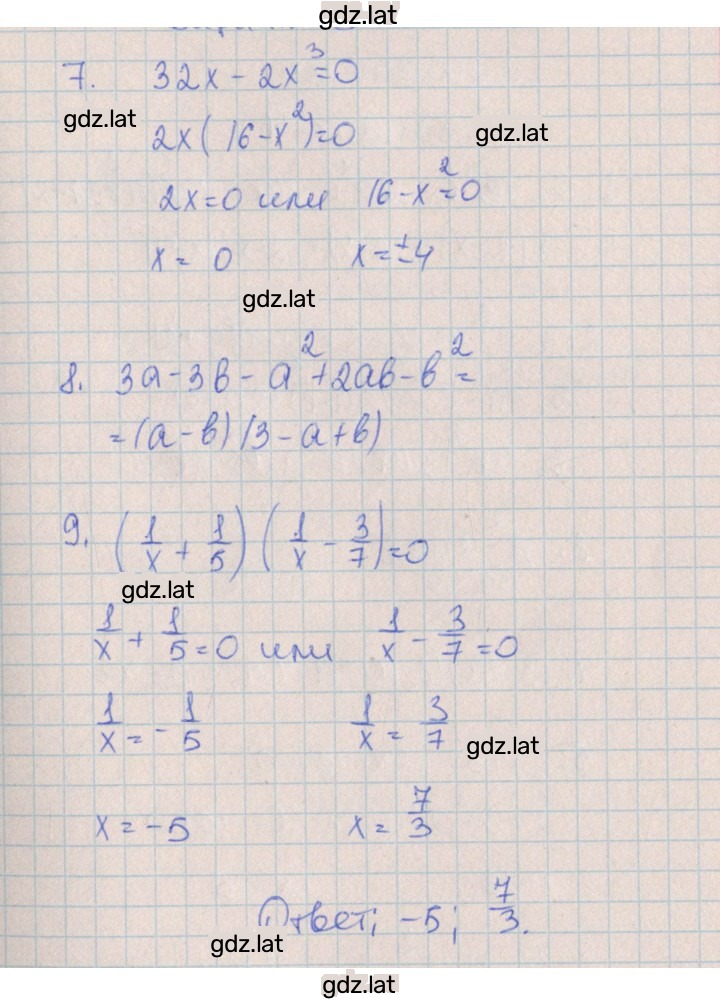 gdz.lat
7. 32x - 2x³ = 0
gdz.lat
2x(16 - x²) = 0
gdz.lat
2x = 0 или 16 - x² = 0
x = 0 x = ±4
gdz.lat
8. 3a - 3b - a² + 2ab - b² =
= (a - b)(3 - a + b)
9. (1/x + 1/5)(1/x - 3/7) = 0
gdz.lat
1/x + 1/5 = 0 или 1/x - 3/7 = 0
1/x = - 1/5 1/x = 3/7
gdz.lat
x = -5 x = 7/3
Ответ; -5; 7/3.
gdz.lat
gdz.lat